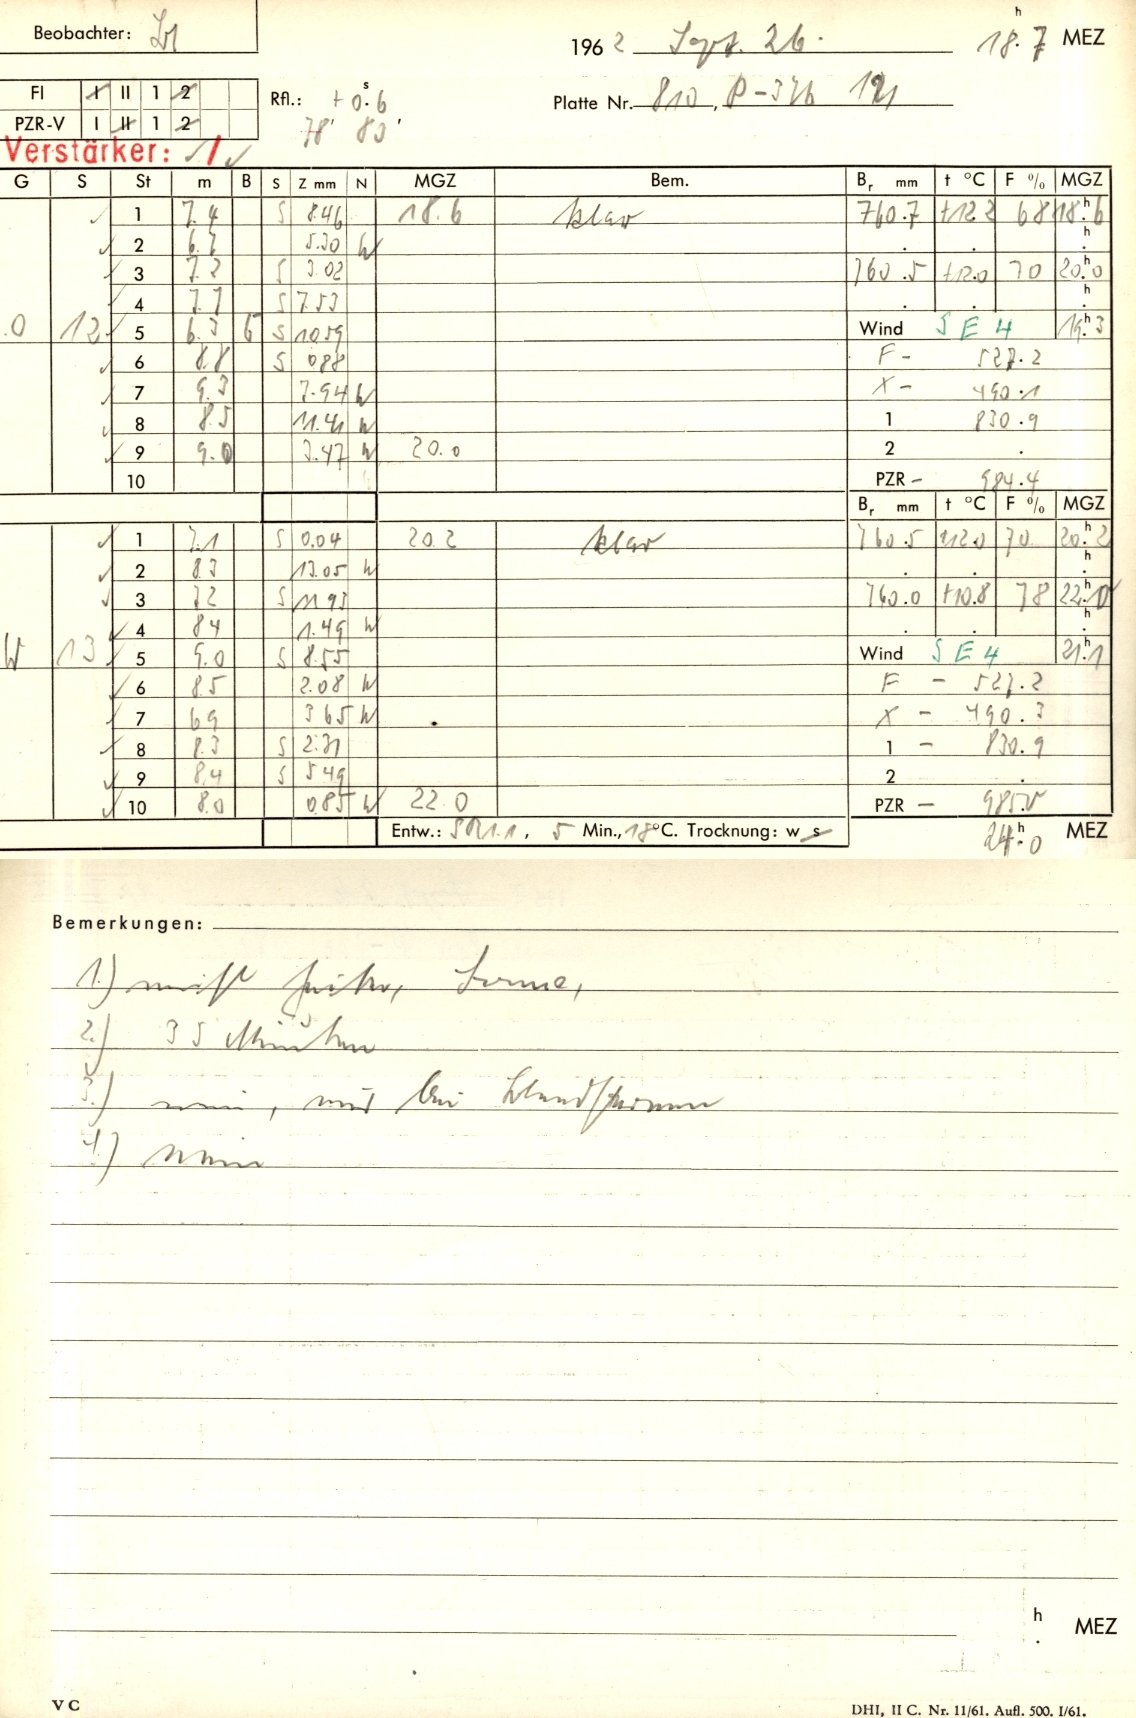 Beobachter:
1962 Sept. 26. 18.h7 MEZ
FI I II 1 2
Rfl.: +0.s6
Platte Nr. 810, P-326
PZR-V I II 1 2
78' 83'
Verstärker: 1
G S St m B S Z mm N MGZ Bem. Br mm t °C F % MGZ
1 7.4 S 8.46 18.6 klar 760.7 +12.2 68 18.h6
2 6.7 5.30 W h
3 7.2 S 3.02 760.5 +12.0 70 20.h0
4 7.7 S 7.53 h
.0 12 5 6.3 6 S 10.59 Wind SE 4 19.h3
6 8.8 S 0.88 F - 527.2
7 9.3 7.94 W X - 490.1
8 8.5 11.41 W 1 830.9
9 9.0 3.47 W 20.0 2 .
10 PZR - 984.4
Br mm t °C F % MGZ
1 7.1 S 0.04 20.2 klar 760.5 +12.0 70 20.h2
2 8.3 13.05 W h
3 7.2 S 11.93 760.0 +10.8 78 22.h0
4 8.4 1.49 W h
W 13 5 9.0 S 8.55 Wind SE 4 21.h1
6 8.5 2.08 W F - 527.2
7 6.9 3.65 W X - 490.3
8 8.3 S 2.31 1 - 830.9
9 8.4 S 5.49 2 .
10 8.0 0.85 W 22.0 PZR - 985.0
Entw.: 5 Min., 18°C. Trocknung: w s 24.h0 MEZ
Bemerkungen:
1.) meist heiter, Sonne,
2.) 35 Minuten
3.) nein, nur bei
4.) nein
h MEZ
V C
DHI, II C. Nr. 11/61. Aufl. 500. I/61.